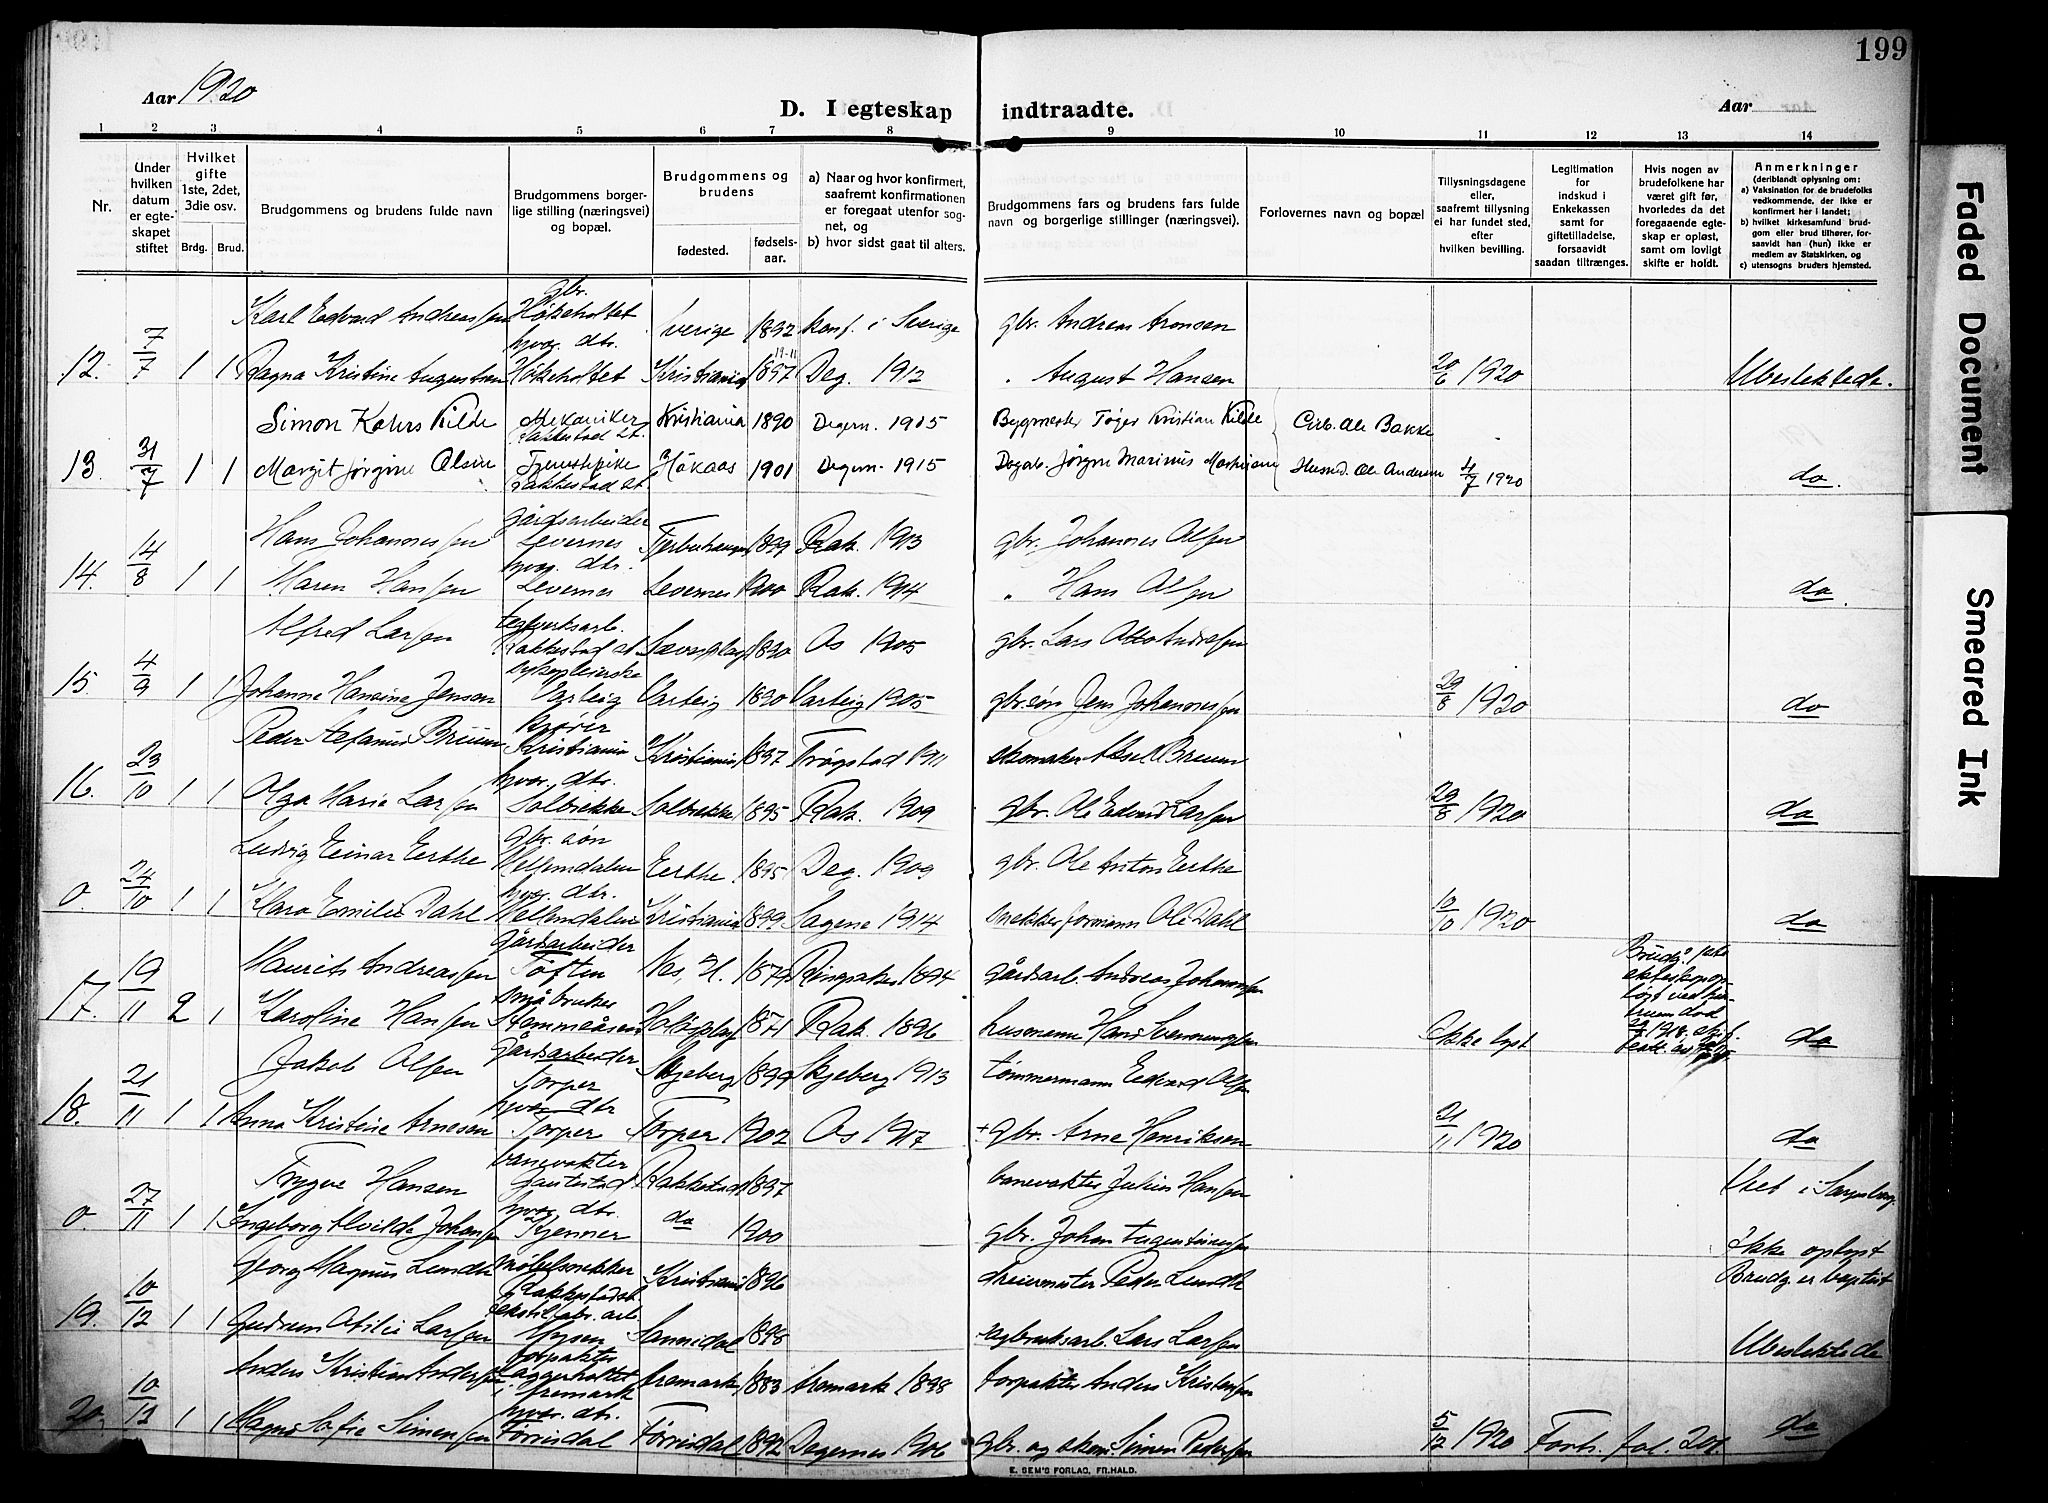 199
Aar 1920
D. I egteskap indtraadte.
Aar
1 2 3 4 5 6 7 8 9 10 11 12 13 14
Nr.
Under hvilken datum er egte-skapet stiftet
Hvilket gifte 1ste, 2det, 3die osv.
Brdg. Brud.
Brudgommens og brudens fulde navn
Brudgommens borger-lige stilling (næringsvei) og bopæl.
Brudgommens og brudens
fødested. fødsels-aar.
a) Naar og hvor konfirmert, saafremt konfirmationen er foregaat utenfor sog-net, og
b) hvor sidst gaat til alters.
Brudgommens fars og brudens fars fulde navn og borgerlige stillinger (næringsvei).
Forlovernes navn og bopæl
Tillysningsdagene eller, saafremt tillysning ei har fundet sted, efter hvilken bevilling.
Legitimation for indskud i Enkekassen samt for giftetilladelse, forsaavidt saadan tiltrænges.
Hvis nogen av brudefolkene har været gift før, hvorledes da det foregaaende egte-skap er opløst, samt om lovligt skifte er holdt.
Anmerkninger
(deriblandt oplysning om:
a) Vaksination for de brudefolks vedkommende, der ikke er konfirmert her i landet;
b) hvilket kirkesamfund brud-gom eller brud tilhører, for-saavidt han (hun) ikke er medlem av Statskirken, og
c) utensogns bruders hjemsted.
Karl Edvard Andreassen gbr. Høkeholtet Sverige 1892 konf. i Sverige gbr. Andreas Aronsen
12. 7/7 1 1 Ragna Kristine Augustsen hvor. dtr. Høkeholtet Kristiania 19-11 1897 Deg. 1912 " August Hansen 20/6 1920 Ubeslektede.
Simon Kahrs Kilde Mekaniker Rakkestad st. Kristiania 1890 Degern. 1905 Bygmester Tøger Kristian Kilde Ole Bakke
13. 31/7 1 1 Margit Jørgine Olsen Tjenestepike Rakkestad st. Håkaas 1901 Degern. 1915 Jørgen Marinius Husmd. Ole Andersen 4/7 1920 do.
Hans Johannessen gårdsarbeider Levernes 1899 Rak. 1913 gbr. Johannes Olsen
14. 14/8 1 1 Maren Hansen hvor. dtr. Levernes Levernes 1900 Rak. 1914 " Hans Olsen do.
Alfred Larsen teglverksarb. Rakkestad st. 1890 Os 1905 gbr. Lars Otto Andresen
15. 4/9 1 1 Johanne Hansine Jensen sykepleierske Varteig Varteig 1890 Varteig 1905 gbr.søn Jens Johannessen 29/8 1920 do
Peder Stefanus Bruun kjører Kristiania Kristiania 1897 Trøgstad 1911 skomaker Aksel Bruun
16. 23/10 1 1 Olga Marie Larsen hvor. dtr. Solbrekke Solbrekke 1895 Rak. 1909 gbr. Ole Edvard Larsen 29/8 1920 do
Ludvig Einar Eerthe gbr. søn Eerthe 1895 Deg. 1909 gbr. Ole Anton Eerthe
0. 24/10 1 1 Klara Emilie Dahl hvor. dtr. Kristiania 1899 Sagene 1914 snekkerformann Ole Dahl 10/10 1920 do
Maurits Andreassen gårdsarbeider Toften Nes, H. 1879 Ringsaker 1894 gårdsarb. Andreas Johannessen
17. 19/11 2 1 Karoline Hansen småbruker Stommeåsen 1871 Rak. 1896 husmann Hans Ikke lyst Brudg.s første do
Jakob Olsen Gårdsarbeider Torper Skjeberg 1899 Skjeberg 1913 tømmermann Edvard Olsen
18. 21/11 1 1 Anna Kristine Arnesen hvor dtr Torper Torper 1902 Os 1917 + gbr. Arne Henriksen 21/11 1920 do
Trygve Hansen banevakter Gautestad Rakkestad 1897 banevakter Julius Hansen Viet i Sarpsborg.
0. 27/11 1 1 Ingeborg Alvilde Johansen hvor. dtr. Kjenner do 1900 gbr. Johan Augustinussen Ikke oplyst
Georg Magnus Lundh møbelsnekker Rakkestad st. Kristiania 1896 dreiermester Peder Lundh Brudg er baptist
19. 10/12 1 1 Gudrun Otilie Larsen tekstilfabr. arb. Mysen Sannidal 1898 sagbruksarb. Lars Larsen Ubeslektede
Anders Kristian Andersen forpakter i Aremark Aremark 1883 Aremark 1898 forpakter Anders Kristensen
20. 10/12 1 1 Magna Sofie Simensen hvor. dtr. Tørrisdal Tørrisdal 1892 Degernes 1906 gbr. og skom. Simen Pedersen 5/12 1920 Forts. fol. 201 do
E. SEM'S FORLAG, FR.HALD.
Faded Document
Smeared Ink